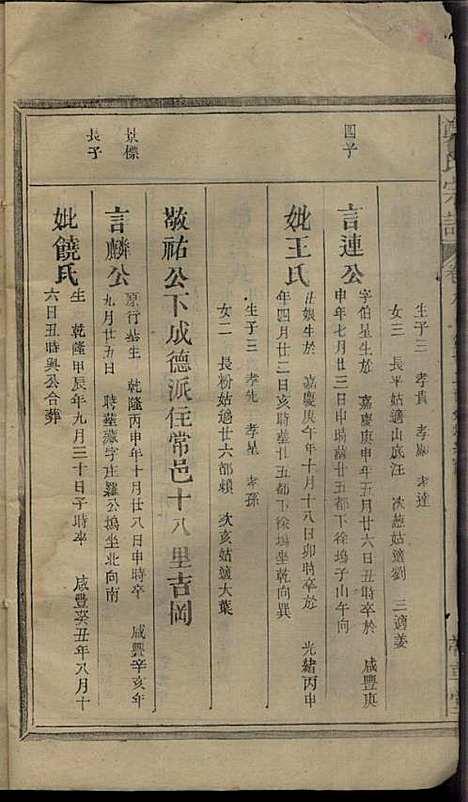 鄭氏宗譜
生子三 孝貴 孝顯 孝達
女三 長平姑適山底汪 次慈姑適劉 三適姜
四子
言連公
字伯星生於 嘉慶庚申年五月廿六日丑時卒於 咸豐庚
申年七月廿三日申時葬廿五都下徐塢子山午向
妣王氏
丑娘生於 嘉慶庚午年十月十八日卯時卒於 光緒丙申
年四月廿二日亥時葬廿五都下徐塢坐乾向巽
生子三 孝先 孝星 孝孫
女二 長粉姑適廿六都賴 次亥姑適大葉
敬祐公下成德派住常邑十八里吉岡
景標
長子
言麟公
原行基生 乾隆丙申年十月廿八日申時卒 咸豐辛亥年
九月廿五日 時葬濃字庄羅公塢坐北向南
妣饒氏
生 乾隆甲辰年九月三十日子時卒 咸豐癸丑年八月十
六日丑時與公合葬